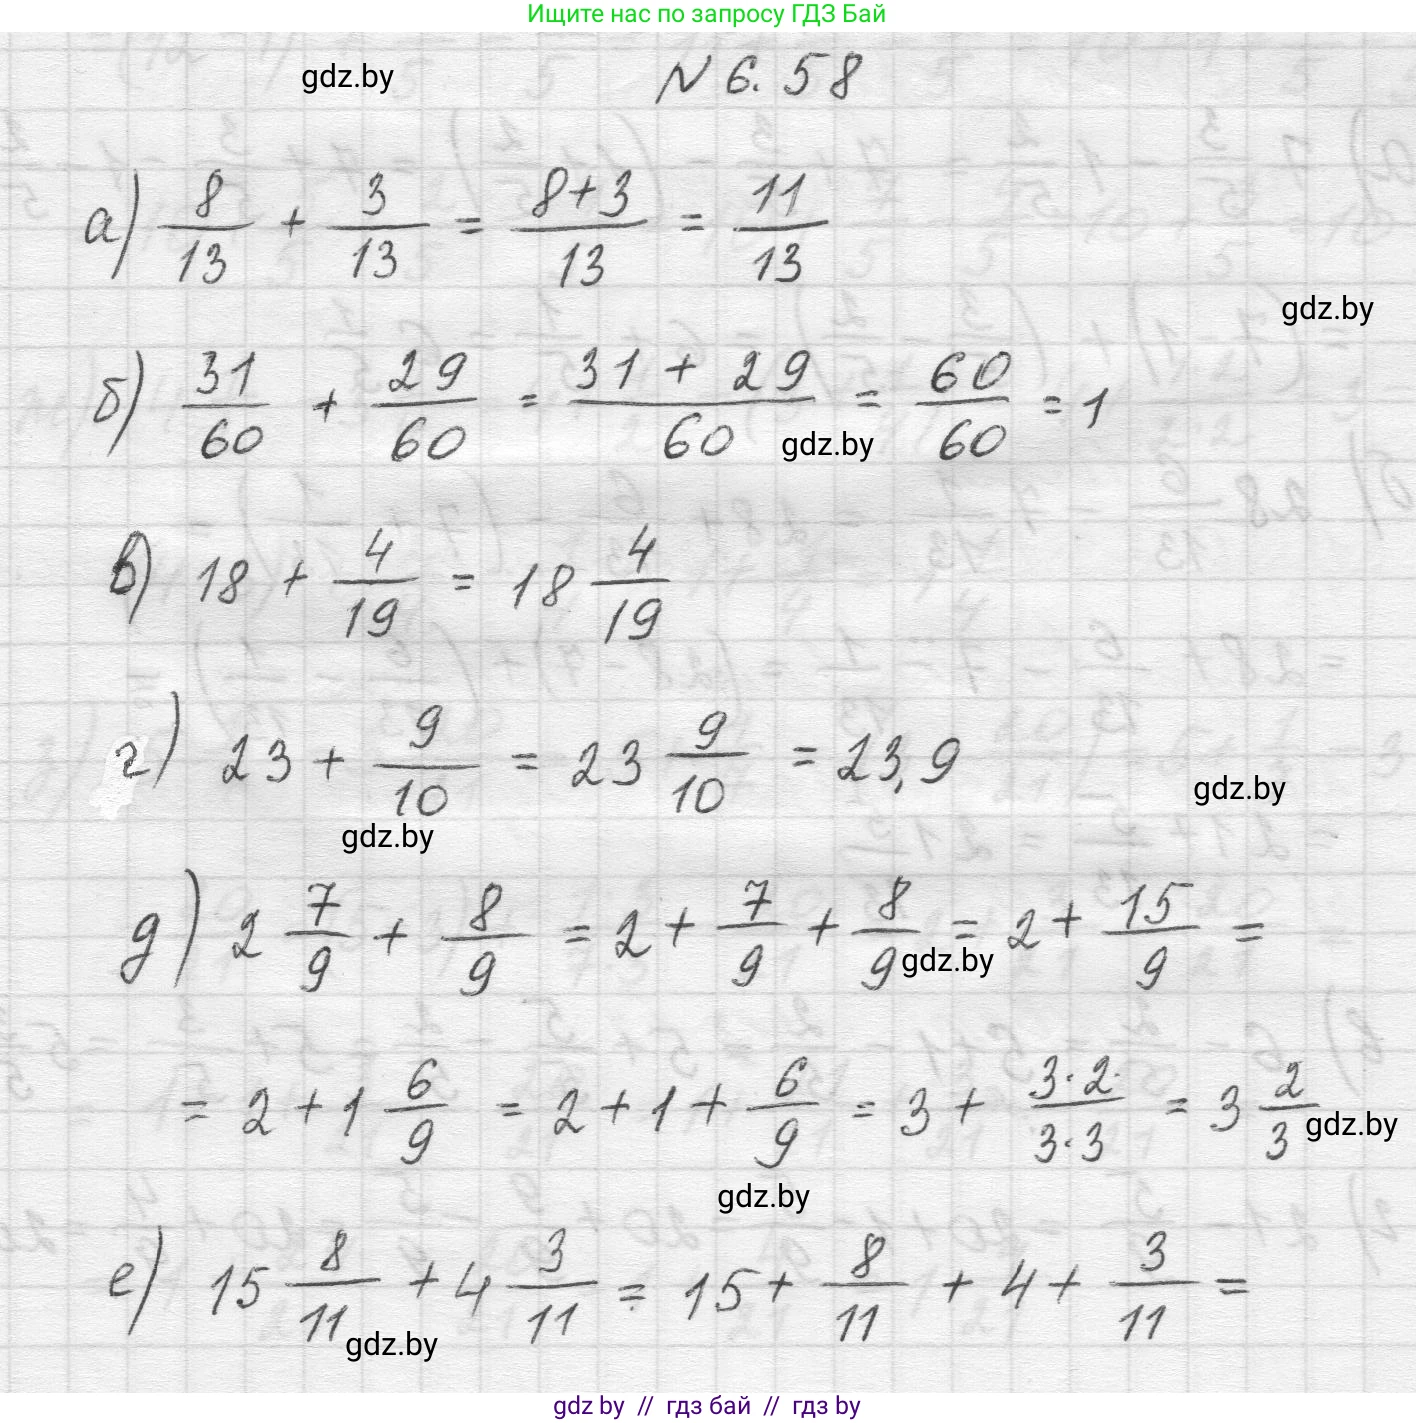 Ищите нас по запросу ГДЗ Бай
gdz.by
N 6.58
а) 8/13 + 3/13 = 8+3/13 = 11/13
gdz.by
б) 31/60 + 29/60 = 31 + 29/60 = 60/60 = 1
gdz.by
в) 18 + 4/19 = 18 4/19
г) 23 + 9/10 = 23 9/10 = 23,9
gdz.by
gdz.by
д) 2 7/9 + 8/9 = 2 + 7/9 + 8/9 = 2 + 15/9 =
gdz.by
= 2 + 1 6/9 = 2 + 1 + 6/9 = 3 + 3·2/3·3 = 3 2/3
gdz.by
gdz.by
е) 15 8/11 + 4 3/11 = 15 + 8/11 + 4 + 3/11 =
gdz.by
gdz.by // гдз бай // гдз by